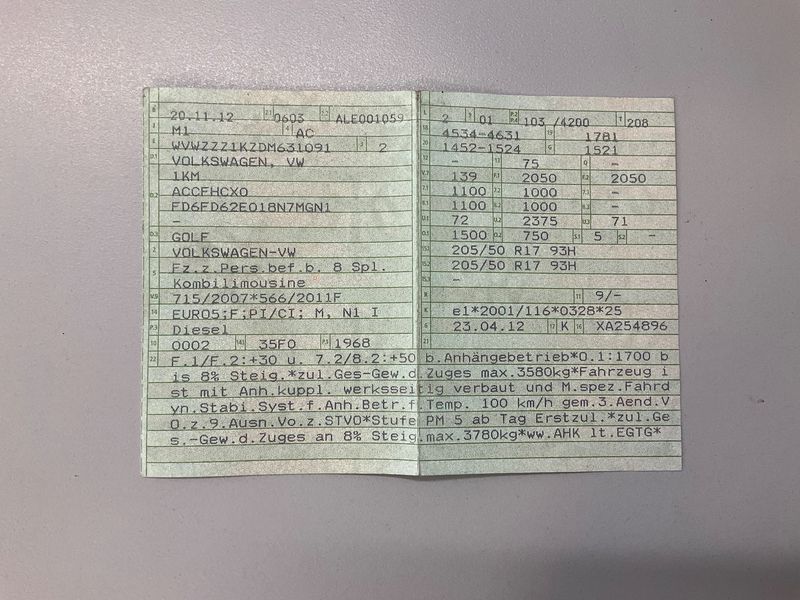 20.11.12 0603 ALE001059
M1 AC
WVWZZZ1KZDM631091 2
VOLKSWAGEN, VW
1KM
ACCFHCX0
FD6FD62E018N7MGN1
-
GOLF
VOLKSWAGEN-VW
Fz.z.Pers.bef.b. 8 Spl.
Kombilimousine
715/2007*566/2011F
EURO5;F;PI/CI; M, N1 I
Diesel
0002 35F0 1968
2 01 103 /4200 208
4534-4631 1781
1452-1524 1521
- 75 -
139 2050 2050
1100 1000 -
1100 1000 -
72 2375 71
1500 750 5 -
205/50 R17 93H
205/50 R17 93H
-
9/-
e1*2001/116*0328*25
23.04.12 K XA254896
F.1/F.2:+30 u. 7.2/8.2:+50 b.Anhängebetrieb*O.1:1700 b
is 8% Steig.*zul.Ges-Gew.d.Zuges max.3580kg*Fahrzeug i
st mit Anh.kuppl. werksseitig verbaut und M.spez.Fahrd
yn.Stabi.Syst.f.Anh.Betr.f.Temp. 100 km/h gem.3.Aend.V
O.z.9.Ausn.Vo.z.STVO*Stufe PM 5 ab Tag Erstzul.*zul.Ge
s.-Gew.d.Zuges an 8% Steig.max.3780kg*ww.AHK lt.EGTG*